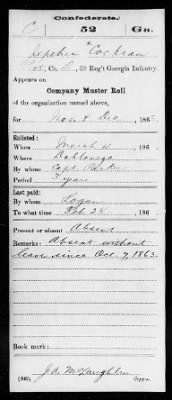 Confederate.
C 52 Ga.
Jepthia Cochran
Pvt, Co. D, 52 Reg't Georgia Infantry.
Appears on
Company Muster Roll
of the organization named above,
for Nov & Dec, 186
Enlisted:
When March 4, 186
Where Dahlonega
By whom Capt. Parker
Period 3 years
Last paid:
By whom Logan
To what time Feb. 28, 186
Present or absent Absent
Remarks: Absent without
leave since Oct. 7, 1863.
Book mark:
J. A. McLaughlin
(642) Copyist.